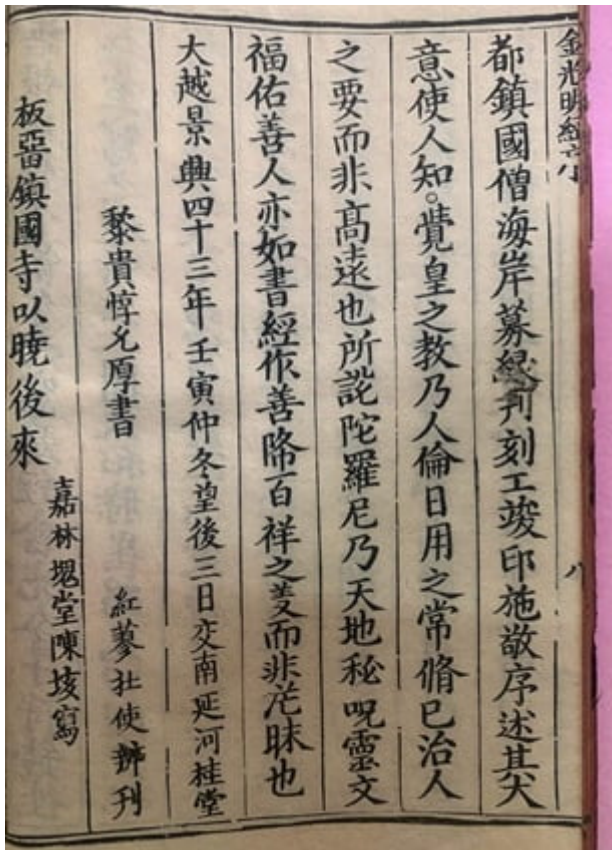 金光明經六小
八
都鎮國僧海岸募緣刊刻工竣印施敬序述其大
意使人知。覺皇之教乃人倫日用之常脩己治人
之要而非高遠也所說陀羅尼乃天地秘呪靈文
福佑善人亦如書經作善降百祥之義而非茫昧也
大越景興四十三年壬寅仲冬望後三日交南延河桂堂
黎貴惇允厚書
紅蓼社使辦刊
板畱鎮國寺以曉後來
嘉林堂陳寫